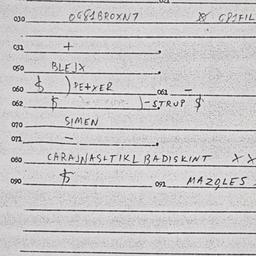 021
030 OG81BROXN7 CP1FIL
031 +
050 BLEJX
060 $ ) PE+XER 061 –
062 $ )-STRUP $
070 SIMEN
071 –
080 CARAJNASLTIKL BADISKINT XX
090 $ 091 MAZQLES